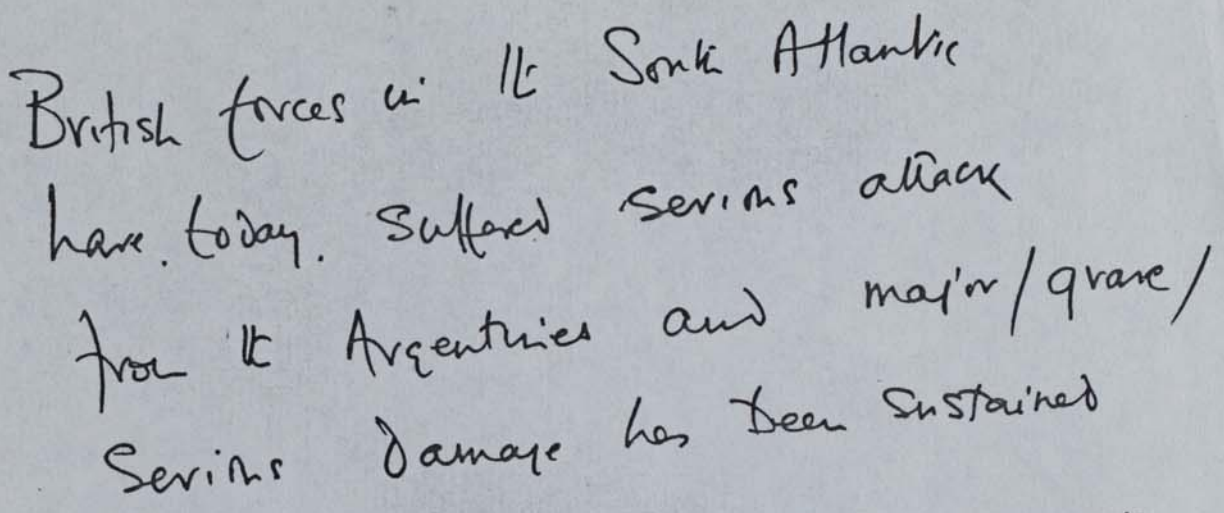 British forces in the South Atlantic
have today suffered serious attack
from the Argentinies and major/grave/
serious damage has been sustained